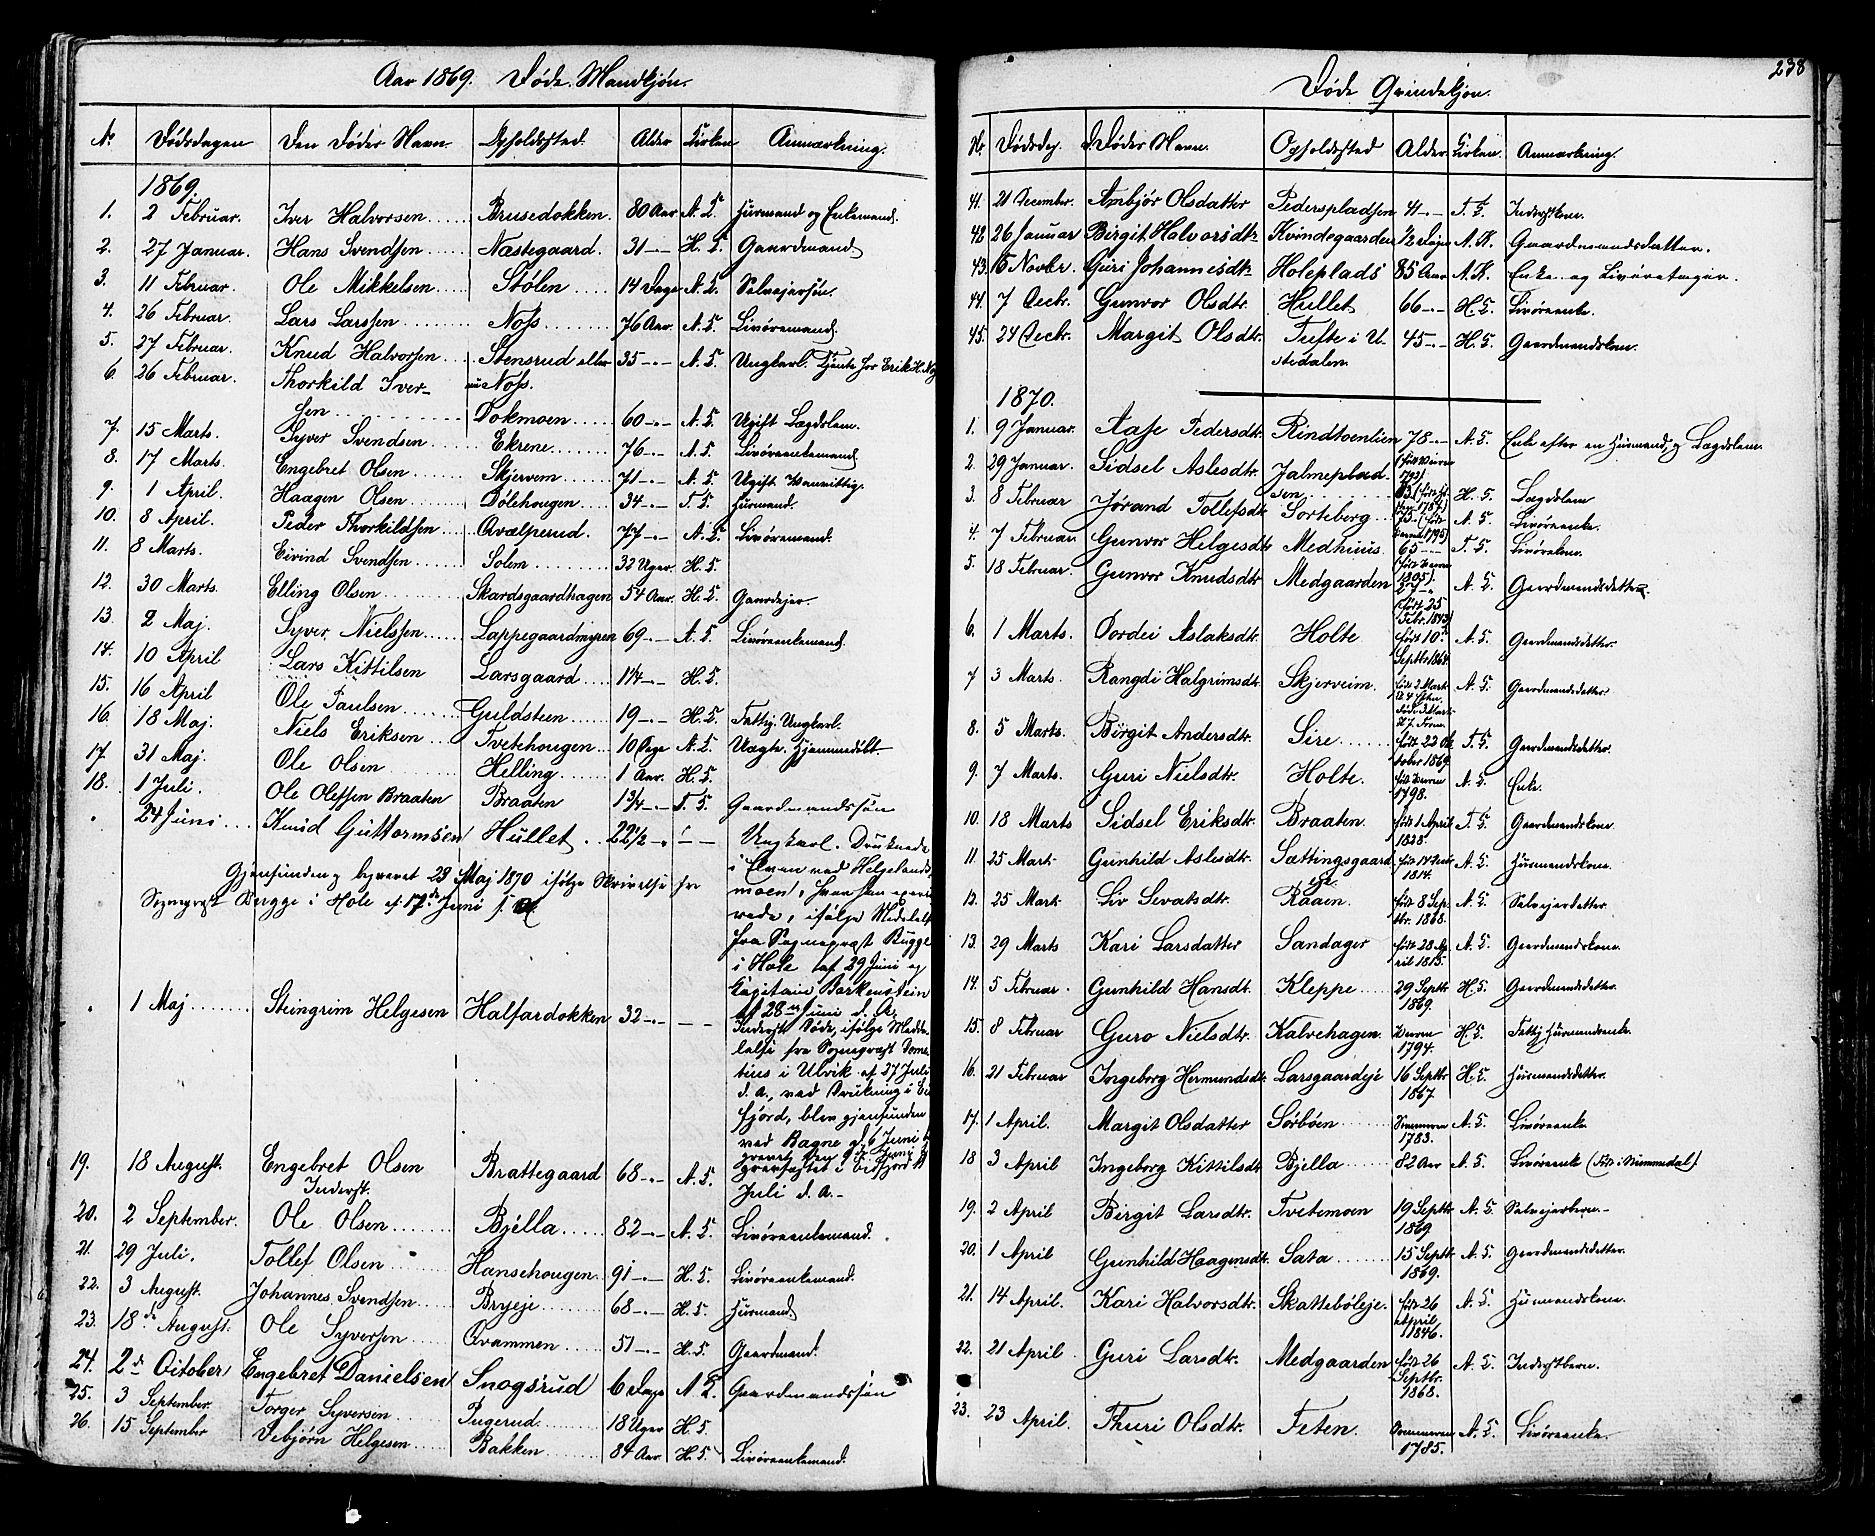 Aar 1869. Døde Mandkjøn.
No Dødsdagen Den Dødes Navn. Opholdssted. Alder Kirken Anmærkning.
1869.
1. 2 Februar. Iver Halvorsen Brusedokken. 80 Aar A. K. Huusmand og Enkemand.
2. 27 Januar. Hans Svendsen Næstegaard. 31 -"- H. K. Gaardmand
3. 11 Februar. Ole Mikkelsen Stølen 14 Dage A. K. Selveiersøn.
4. 26 Februar. Lars Larssen Noss 76 Aar. A. K. Livøremand.
5. 27 Februar. Knud Halvorsen Stensrud eller 35 -"- A. K. Ungkarl. Tjente for Erik H. Noss
6. 26 Februar. Thorkild Iver- Noss.
sen Dokmoen 60 -"- A. K. Ugift Lægdslem.
7. 15 Marts. Syver Svendsen Ekrene 76 -"- A. K. Livøreenkemand
8. 17 Marts. Engebret Olsen Skjervem 71 -"- A. K. Ugift Vanvittig.
9. 1 April. Haagen Olsen Dølehougen 34 -"- T. K. Huusmand.
10. 8 April. Peder Thorkildsen Qvælperud. 77 -"- A. K. Livøremand.
11. 8 Marts. Eivind Svendsen Solem 32 Uger. H. K.
12. 30 Marts. Elling Olsen Skardsgaardhagen 54 Aar. H. K. Gaardejer.
13. 2 Maj. Syver Nielssen Lappegaardmyren 69 -"- A. K. Livøreenkemand.
14. 10 April Lars Kittilsen Larsgaard 1 1/4 -"- H. K.
15. 16 April Ole Paulsen Guldsteen 19 -"- H. K. Fattig Ungkarl.
16. 18 Maj. Niels Eriksen Tvetehougen 10 Dage A. K. Uægte. Hjemmedøbt.
17. 31 Maj. Ole Olsen Helling 1 Aar. H. K.
18. 1 Juli. Ole Olessen Braaten Braaten 1 3/4 -"- T. K. Gaardmandssøn
24 Juni Knud Guttormsen Hullet 22 1/2 -"- Ungkarl. Druknede
i Elven ved Helgelands-
Gjenfunden og begravet 23 Maj 1870 ifølge Skrivelse fra
moen, hvor han exerce-
Sognepræst Bugge i Hole af 17de Juni
rede, ifølge Meddelelse
fra Sognepræst Bugge
i Hole af 29 Juni og
Kapitain Barkenstein
af 28de Juni d. A.
1 Maj Steingrim Helgesen Halfardokken 32 -"- Inderst Døde, ifølge Medde-
lelse fra Sognepræst
i Ulvik af 27 Juli
d. a., ved Drukning i Eid-
fjord, blev gjenfunden
ved Bagne d. 6 Juni
Juli d. A.-
19. 18 August. Engebret Olsen Brattegaard 68 -"- A. K.
Inderst.
20. 2 September. Ole Olsen Bjella 82 -"- A. K. Livøreenkemand.
21. 29 Juli. Tollef Olsen Hansehougen 91 -"- H. K. Livøreenkemand.
22. 3 August. Johannes Svendsen Bryeje 68 -"- H. K. Huusmand
23. 18de August. Ole Syversen Qvammen 51 -"- H. K. Gaardmand.
24. 2de October Engebret Danielsen Snogsrud 6 Dage A. K. Gaardmandssøn
25. 3 September. Torger Syversen Pugerud 18 Uger H. K.
26. 15 September Helgesen Bakken 84 Aar. H. K. Livøreenkemand.
238
Døde Qvindekjøn.
Nr Dødsdag. D. Dødes Navn. Opholdssted Alder Kirken. Anmærkning.
41. 21 December. Ambjør Olsdatter Pederspladsen 41 -"- T. K. Inderstkone.
42 26 Januar Birgit Halvorsdtr Kvindegaarden 1/2 Dage A. K. Gaardmandsdatter.
43. 15 Novbr. Guri Johannesdtr Holeplads 85 Aar A. K. Enke og Livøretager.
44. 7 Decbr. Gunvor Olsdtr. Hullet 66 -"- H. K. Livøreenke.
45. 24 Decbr. Margit Olsdtr. Tufte i U- 45 -"- H. K. Gaardmandskone.
stedalen.
1870.
1. 9 Januar. Aase Pedersdtr. Rindtoenlien 78 -"- A. K. Enke efter en Huusmand, og Lægdslem
2. 29 Januar. Sidsel Aslesdtr. Jalmeplad-
sen H. K. Lægdslem
3. 8 Februar Jørand Tollefsdtr Sorteberg 75 A. K. Livøreenke.
4. 7 Februar. Gunvor Helgesdtr Medhuus. 65 -"- T. K. Livørekone.
5. 18 Februar. Gunvor Knudsdtr. Medgaarden 27 -"- A. K. Gaardmandsdatter
(født 25 Febr. 1843)
6. 1 Marts. Dordei Aslaksdtr. Holte født 10de Septbr. A. K. Gaardmandsdatter.
7 3 Marts. Rangdi Halgrimsdt. Skjerveim. født 2 Marts A. K. Gaardmandsdatter
8. 5 Marts. Birgit Andersdtr. Sire født 22 October 1869. T. K. Gaardmandsdatter.
9. 7 Marts. Guri Nielsdtr. Holte. 1798. A. K. Enke.
10. 18 Marts Sidsel Eriksdtr. Braaten. født 1 April 1828. T. K. Gaardmandskone
11. 25 Marts Gunhild Aslesdtr. Sættingsgaard 1814. A. K. Huusmandskone.
eje
12. 25 Marts Liv Sevatsdtr. Raaen. født 8 Septbr. 1868. A. K. Selvejerdatter
13. 29 Marts Kari Larsdatter Sandager født 28 April 1815. A. K. Gaardmandskone.
14. 5 Februar. Gunhild Hansdt. Kleppe 29 Septbr 1869. H. K. Gaardmandsdatter.
15. 8 Februar Guro Nielsdtr. Kalvehagen. 1794. H. K. Fattig Huusmandsenke.
16. 21 Februar Ingeborg Hermundsdtr. Larsgaardeje 16 Septbr 1867. H. K. Huusmandsdatter.
17. 1 April. Margit Olsdatter Sørbøen Sommeren 1783. A. K. Livøreenke
18 3 April Ingeborg Kittilsdt Bjella 82 Aar A. K. Livøreenke (Født i Nummedal)
19. 2 April Birgit Larsdtr. Tvetemoen 19 Septbr 1869 A. K. Selvejerbarn.
20. 1 April Gunhild Haagensdt. Sata 15 Septbr 1869. A. K. Gaardmandsdatter.
21. 14 April. Kari Halvorsdtr. Skattebøleje. født 26 April 1846. A. K. Huusmandskone.
22. 21 April Guri Larsdtr. Medgaarden født 26 Septbr. 1868. A. K. Inderstbarn.
23. 23 April. Thuri Olsdtr. Feten. Sommeren 1785. A. K. Livøreenke.